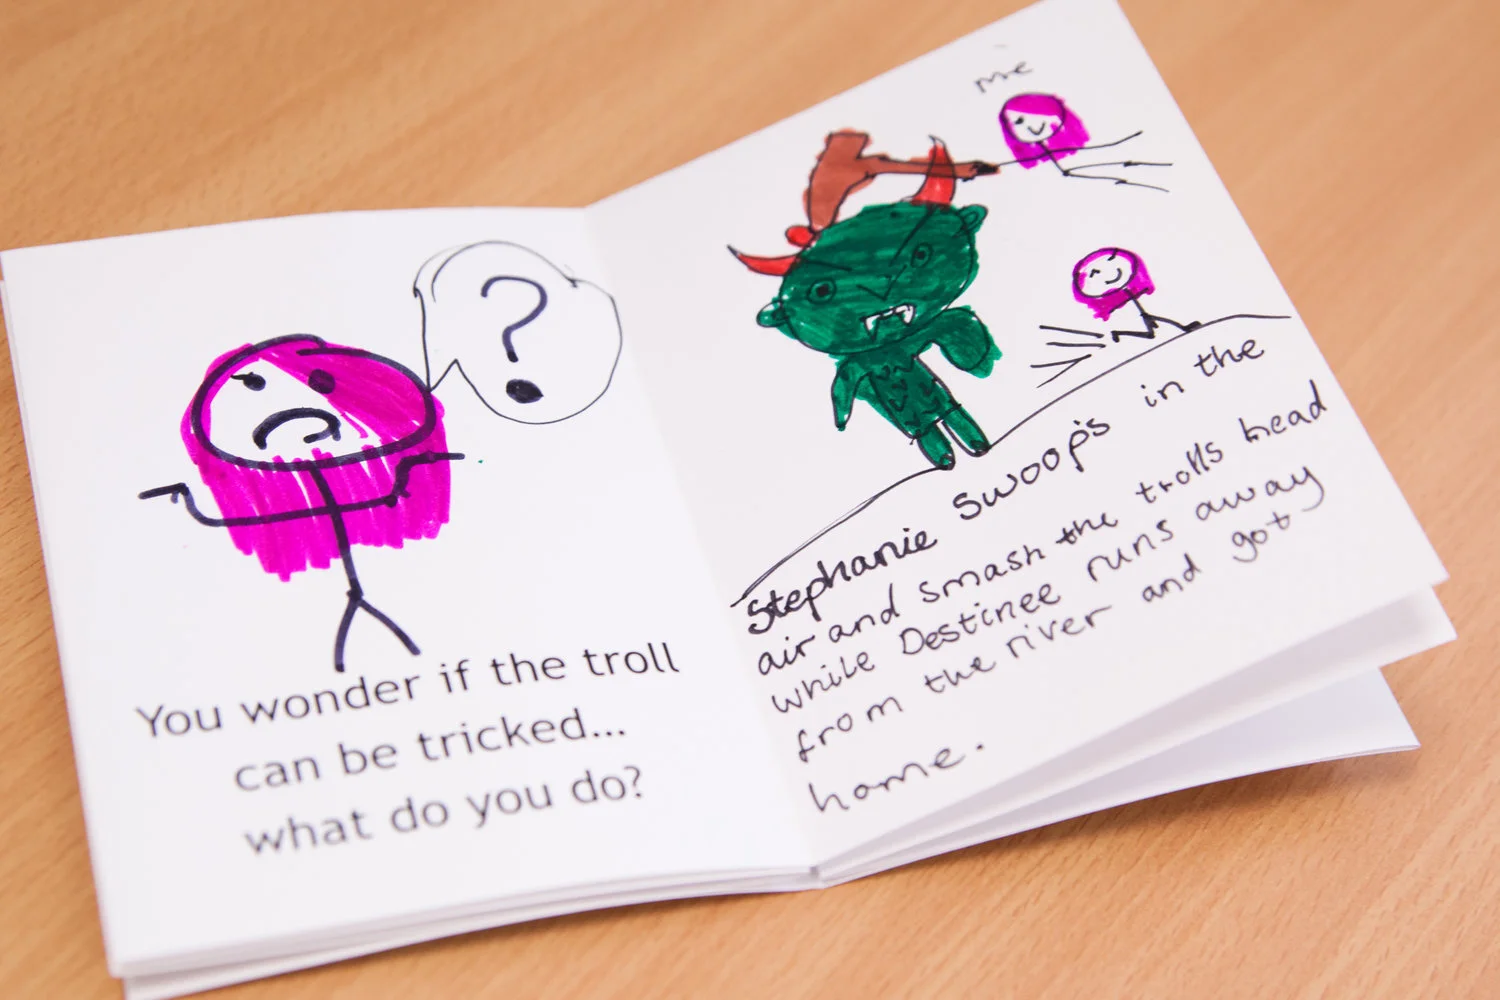 ?
You wonder if the troll
can be tricked...
what do you do?
me
Stephanie swoop's in the
air and smash the trolls head
while Destinee runs away
from the river and got
home.